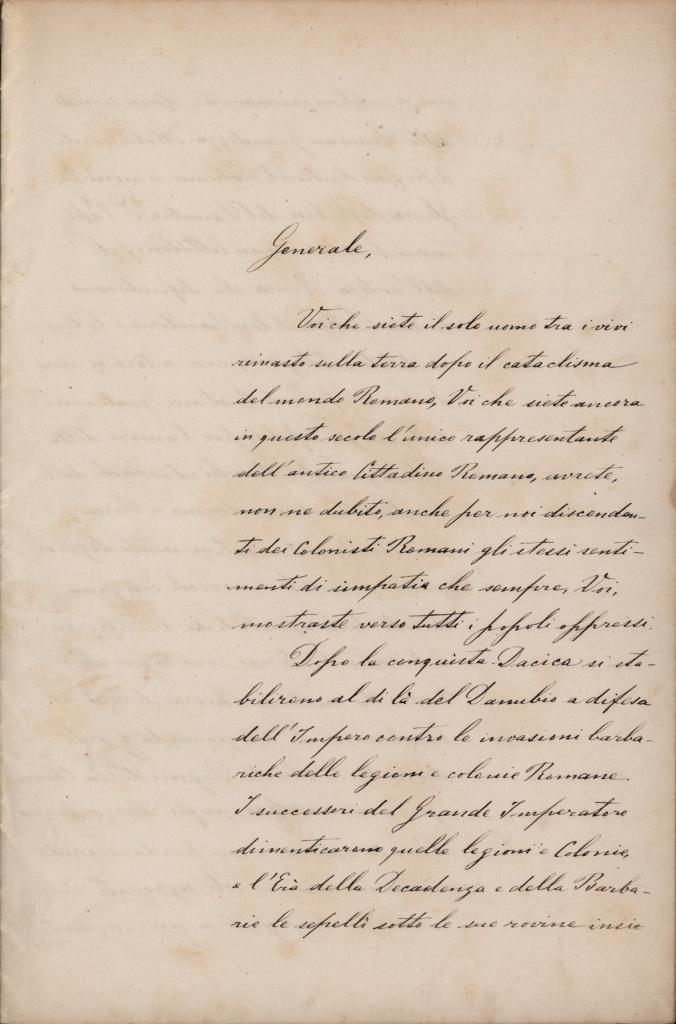 Generale,
Voi che siete il solo uomo tra i vivi
rimasto sulla terra dopo il cataclisma
del mondo Romano, Voi che siete ancora
in questo secolo l'unico rappresentante
dell'antico Cittadino Romano, avrete,
non ne dubito, anche per noi discenden-
ti dei Colonisti Romani gli stessi senti-
menti di simpatia che sempre, Voi,
mostraste verso tutti i popoli oppressi.
Dopo la conquista Dacica si sta-
bilirono al di là del Danubio a difesa
dell'Impero contro le invasioni barba-
riche delle legioni e colonie Romane.
I successori del Grande Imperatore
dimenticarono quelle legioni e Colonie,
e l'Erà della Decadenza e della Barba-
rie le sepellì sotto le sue rovine insie